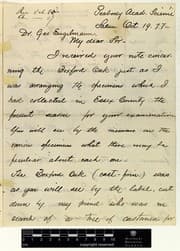 Peabody Acad. Science
Salem Oct. 19. 77.
Dr. Geo Engelmann
My dear Sir.
I received your note concer
ning the Boxford Oak just as I
was arranging the specimens which I
had collected in Essex County the
present season for your examination
You will see by the memoran on the
various specimens what there may be
peculiar about each one.
The Boxford Oak (east-) was
as you will see by the label, cut
down by my friend who was in
search of a tree of